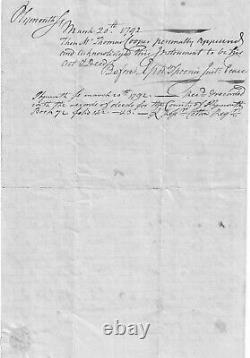 Plymouth Ss
March 20th 1792
Then Mr Thomas Cooper personally appeared
and acknowledged this Instrument to be his
Act & Deed
Before Ephm Spooner Just: Peace
Plymouth Ss March 20th 1792 Recd & recorded
with the records of deeds for the County of Plymouth
Book 72 folio 42 Cotton Regr